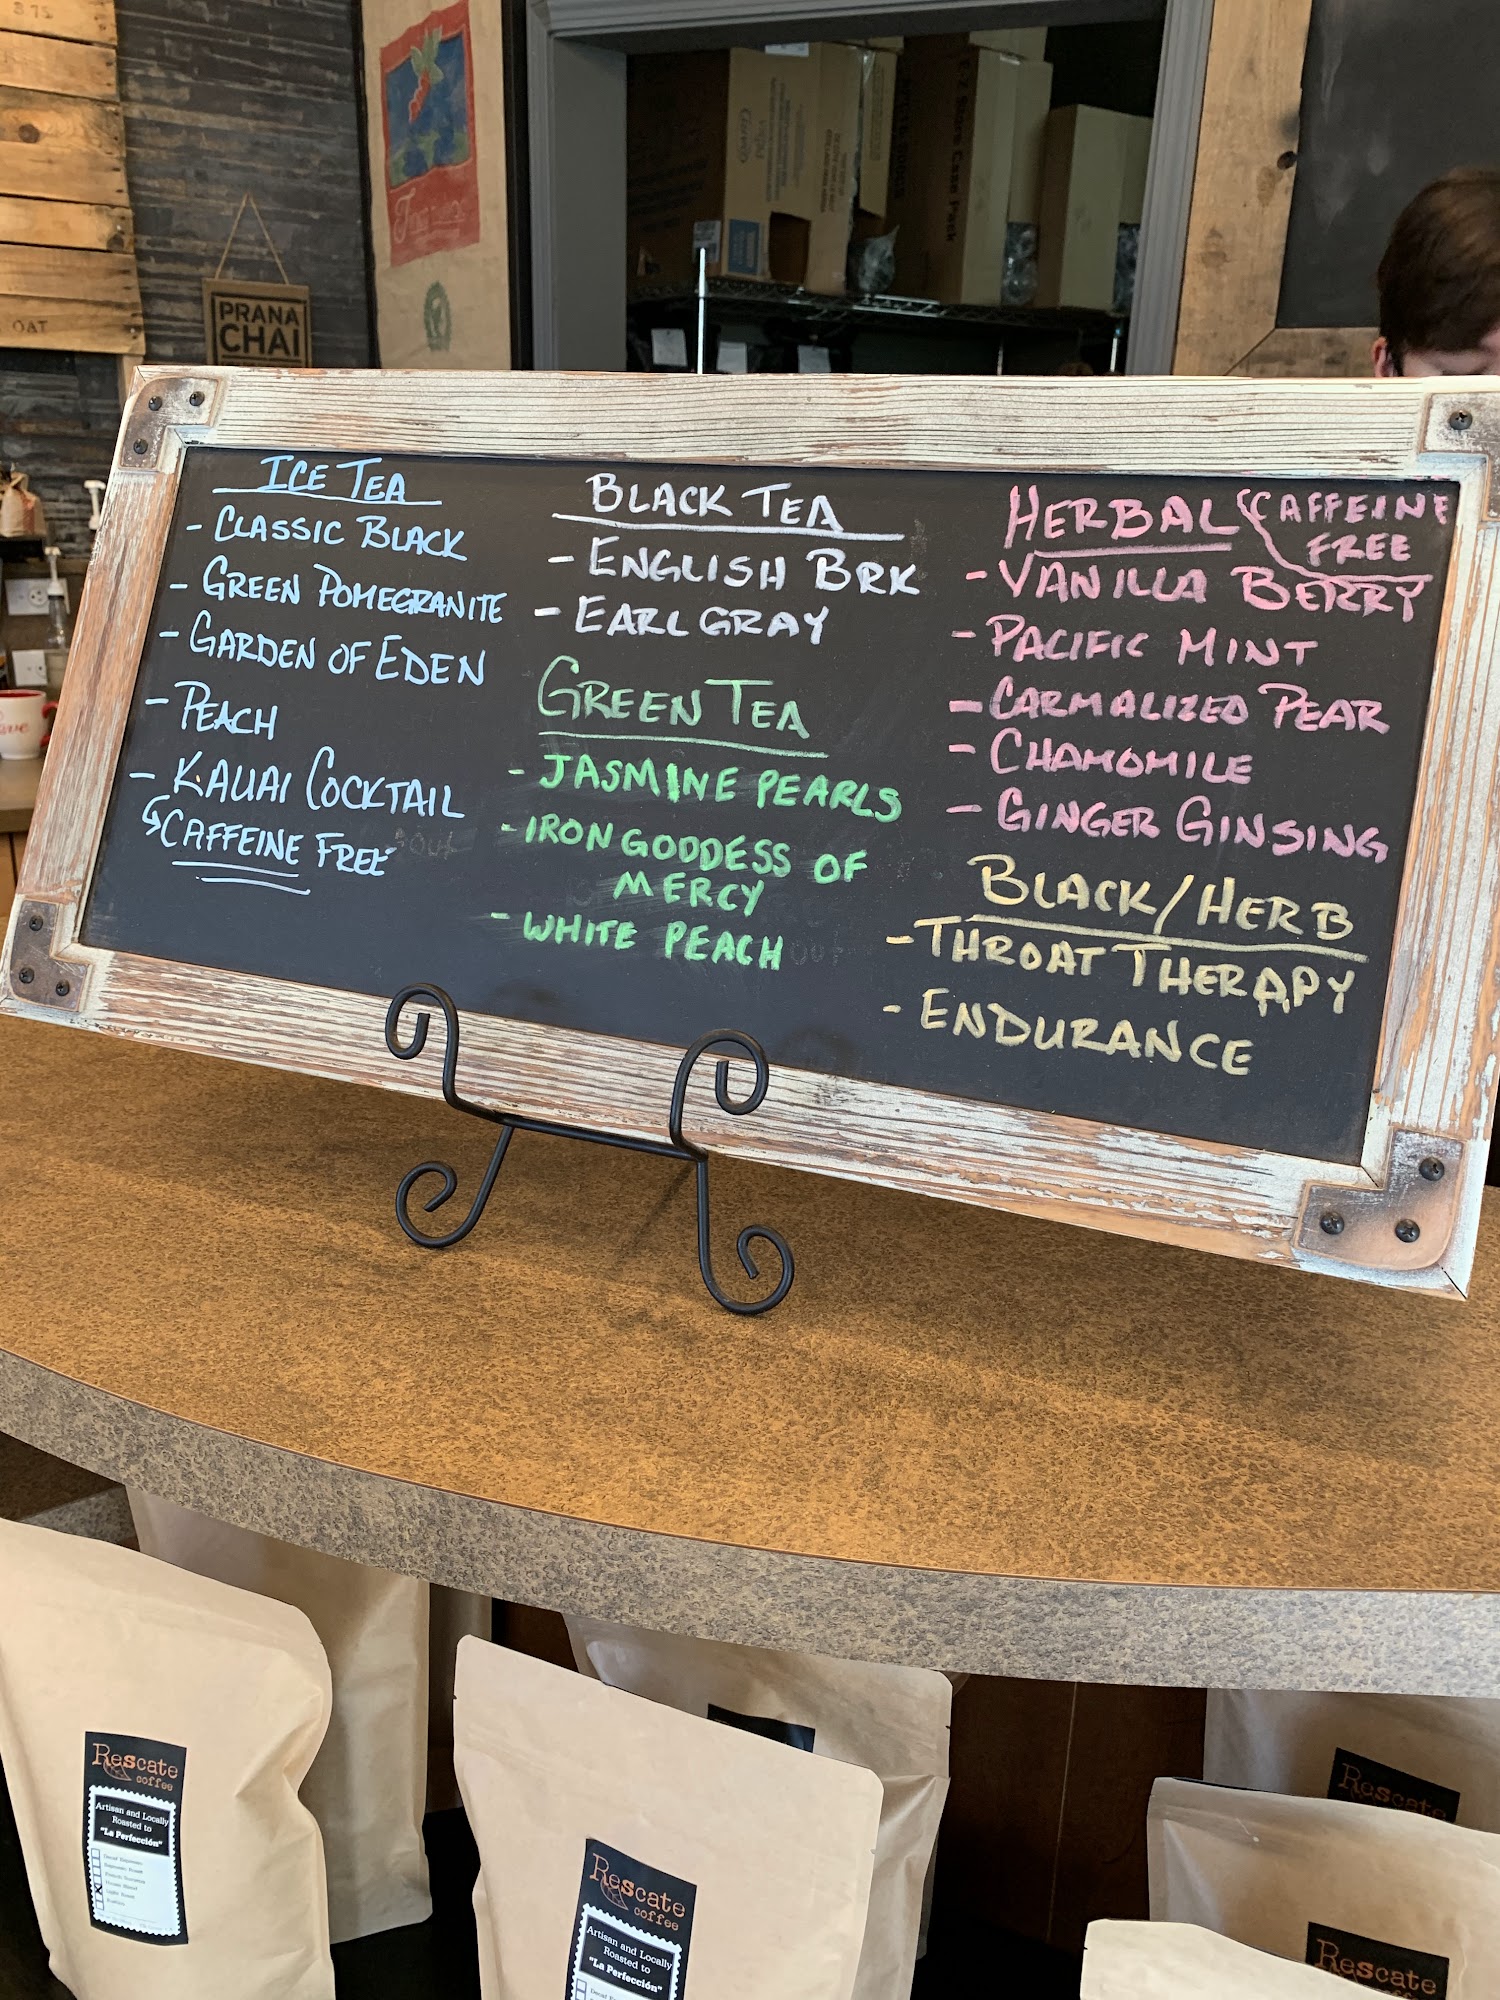 OAT
PRANA
CHAI
EZ Store Case Pack
ICE TEA
- CLASSIC BLACK
- GREEN POMEGRANITE
- GARDEN OF EDEN
- PEACH
- KAUAI COCKTAIL
CAFFEINE FREE
BLACK TEA
- ENGLISH BRK
- EARL GRAY
GREEN TEA
- JASMINE PEARLS
- IRON GODDESS OF
MERCY
- WHITE PEACH
HERBAL (CAFFEINE
FREE
- VANILLA BERRY
- PACIFIC MINT
- CARMALIZED PEAR
- CHAMOMILE
- GINGER GINSING
BLACK/HERB
- THROAT THERAPY
- ENDURANCE
Rescate
coffee
Artisan and Locally
Roasted to
"La Perfección"
Rescate
coffee
Artisan and Locally
Roasted to
"La Perfección"
Rescate
Rescate
coffee